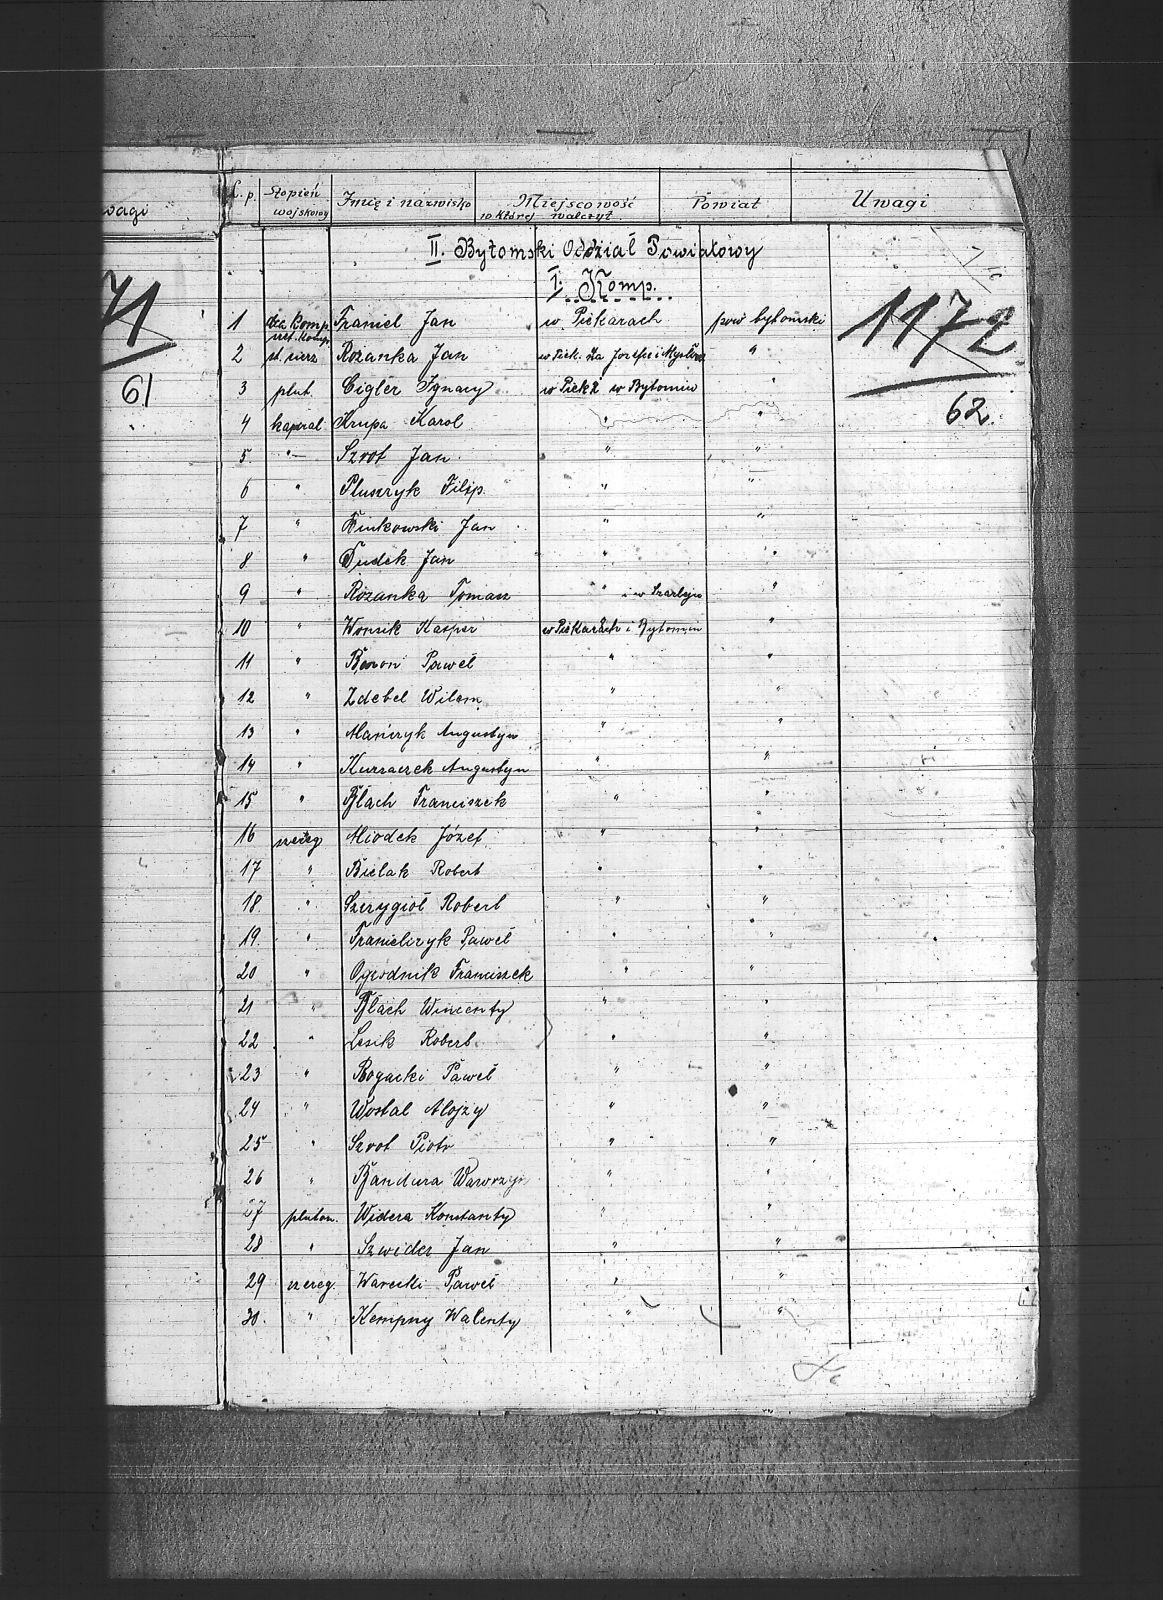 wagi
71
61
L. p. Stopień wojskowy Imię i nazwisko Miejscowość w której walczył Powiat Uwagi
II. Bytomski Oddział Powiatowy
I. Komp.
1172
62.
1 dca Komp. Franiel Jan w Piekarach pow bytomski
2 st. sierz Rożanka Jan w Piek. "
3 plut. Cigler Ignacy w Piek i w Bytomiu "
4 kapral Krupa Karol " "
5. " Szrot Jan. " "
6 " Pluszryk Filip. " "
7 " Jan " "
8 " Dudek Jan " "
9 " Rożanka Tomasz " i w Szarleju "
10 " Wonsik Kasper w Piekarach i Bytomiu "
11 " Baron Paweł " "
12 " Zdebel Wilem. " "
13 " Mańczyk Augustyn " "
14 " Augustyn " "
15 " Blach Franciszek " "
16 szereg Miodek Józef " "
17 " Bielak Robert " "
18. " Szerygioł Robert " "
19. " Franielczyk Paweł " "
20 " Ogrodnik Franciszek " "
21 " Blach Wincenty " "
22 " Lesik Robert. " "
23 " Rogacki Paweł " "
24 " Wostal Alojzy " "
25 " Szrot Piotr " "
26 " Bandura Wawrzyn " "
27 pluton. Widera Konstanty " "
28 " Szwider Jan " "
29 szereg. Warecki Paweł " "
30. " Kempny Walenty " "